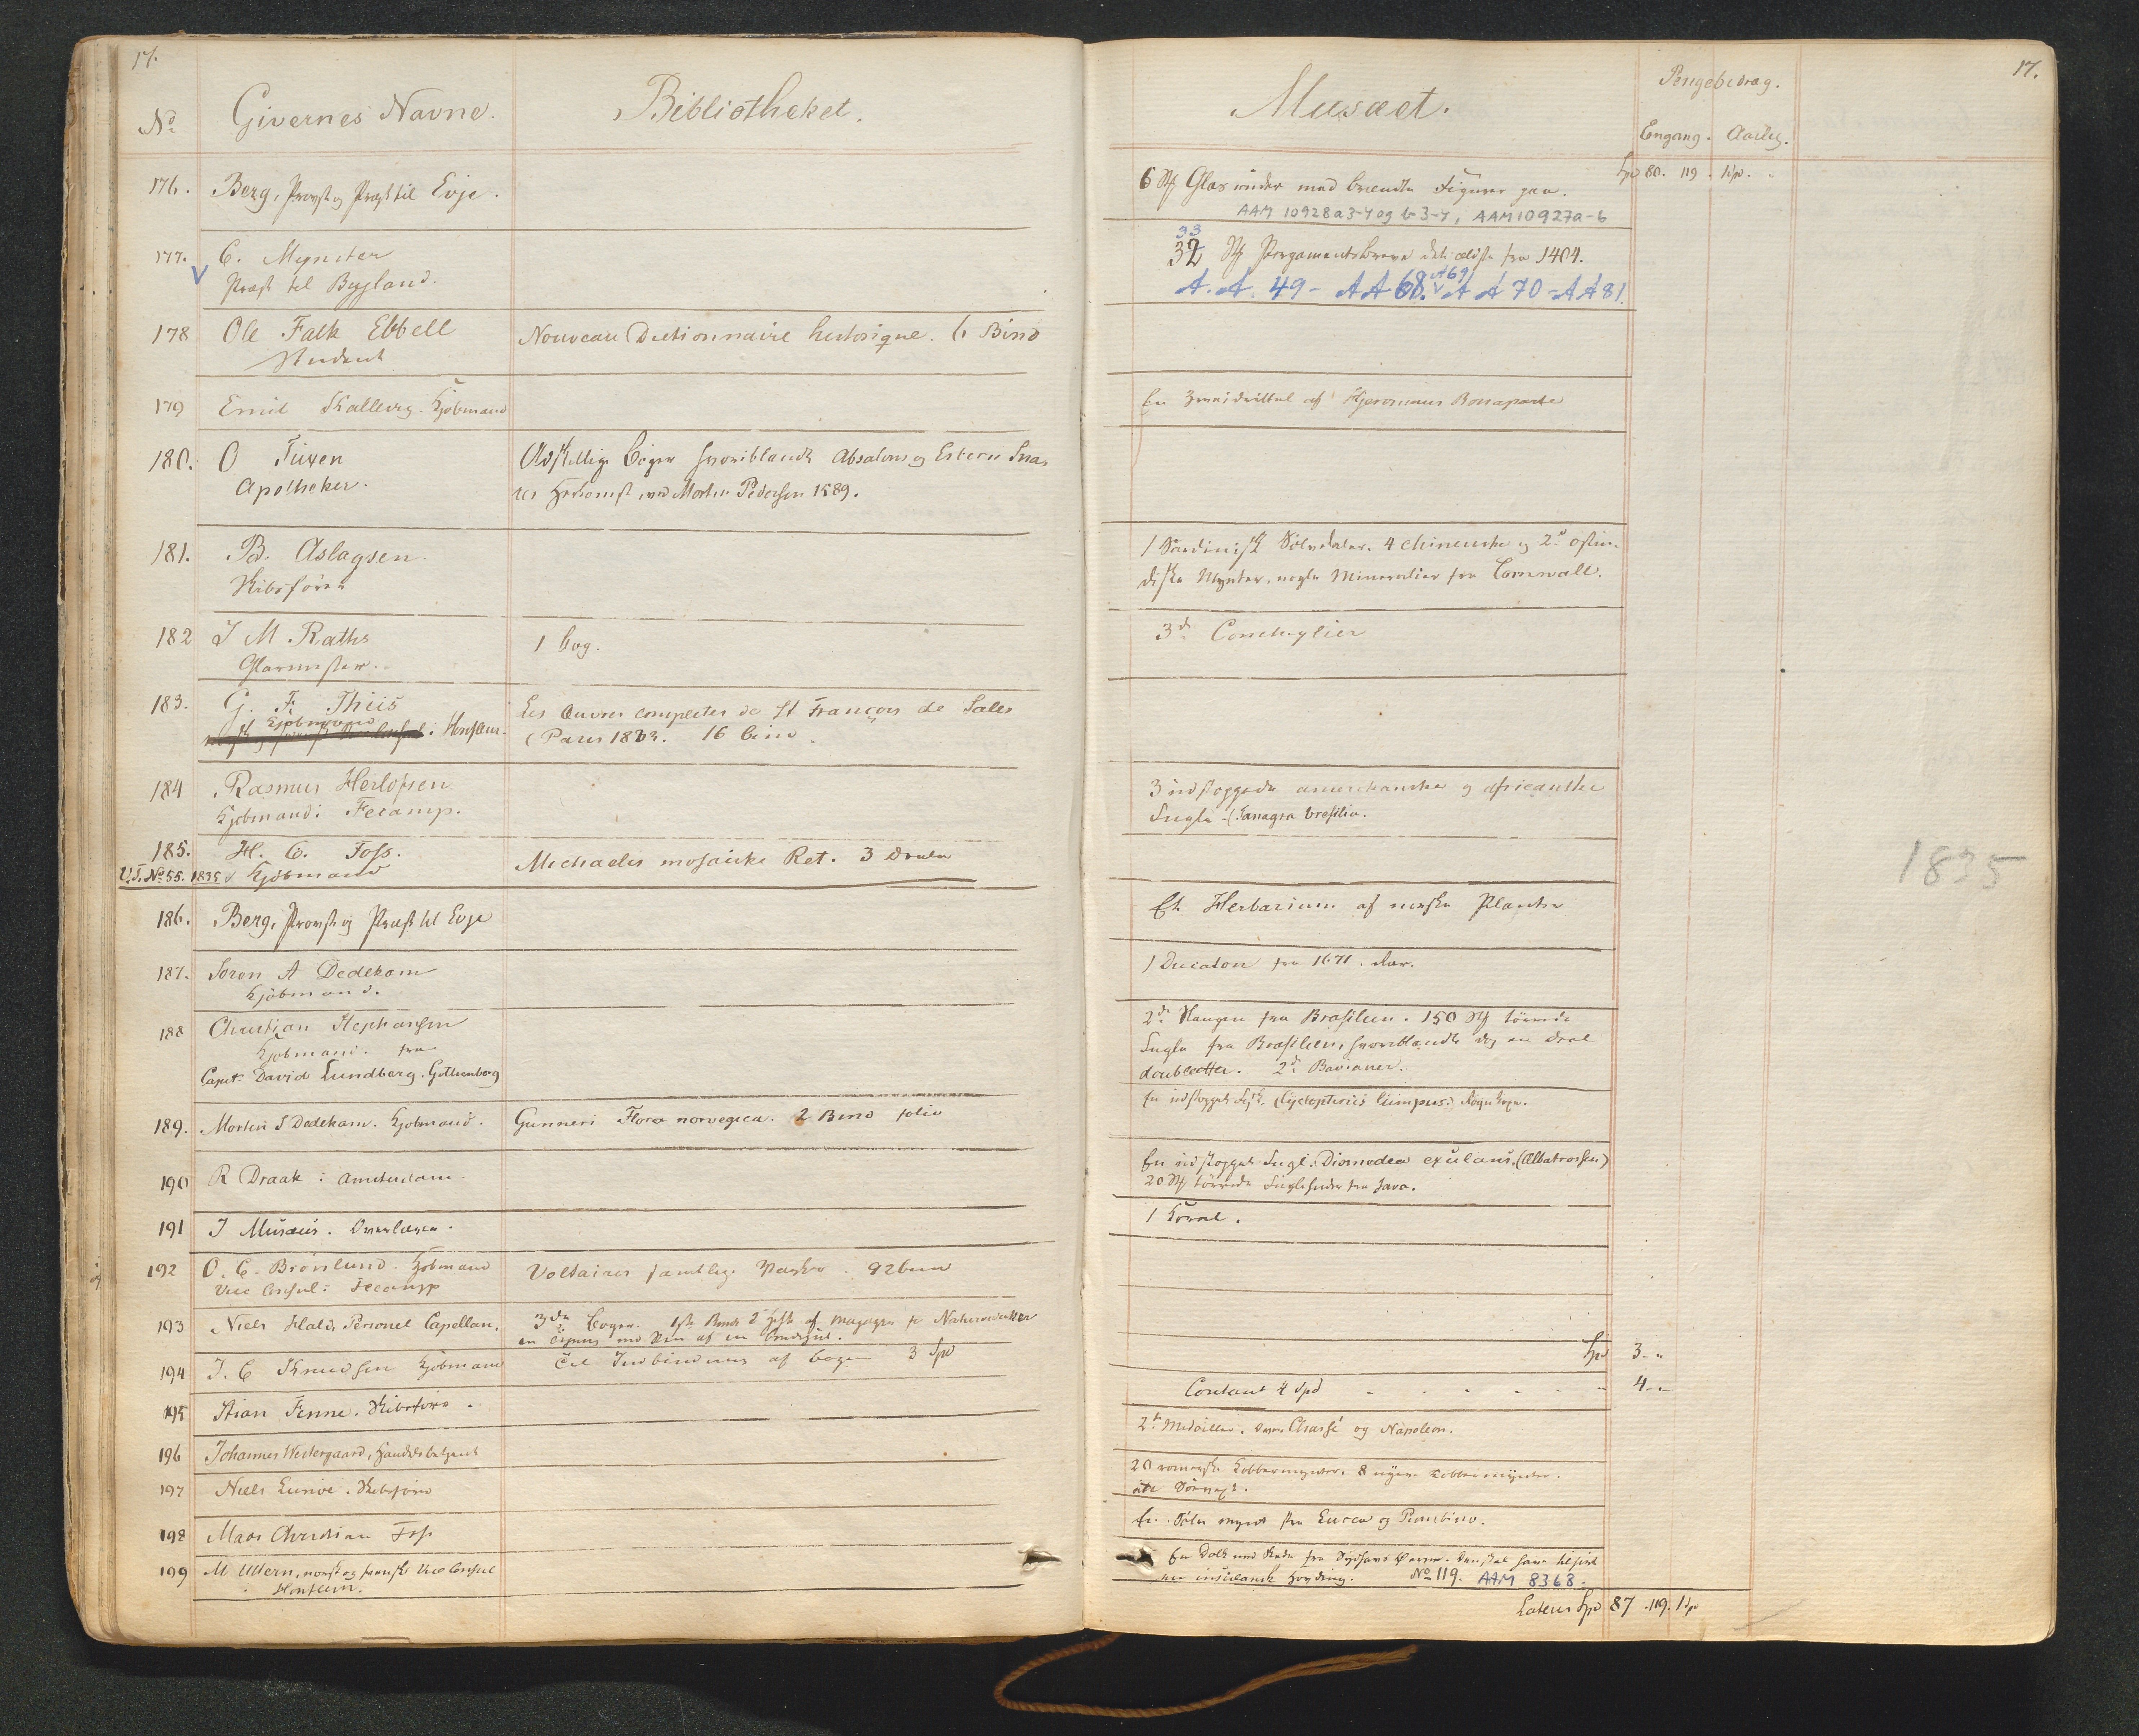 17.
No
Givernes Navne.
Bibliotheket.
176.
Berg, Provst og Præst til Evje.
177.
C. Mynster
V
Præst til Bygland.
178
Ole Falk Ebbell
Student
Nouveau Dictionnaire historique. 6 Bind
179
Emil Kallevig. Kjøbmand
180.
O Tuxen
Apotheker.
Adskillige Bøger hvoriblandt Absalons og Esbern Snares
Herkomst ved Morten Pedersen 1589.
181.
B. Aslagsen.
Skibsfører
182
J M Raths
Glarmester.
1 bog.
183.
G. F. Thiis
Kjøbmand
i Honfleur.
Les Œuvres completes de St François de Sales
(Paris 1833. 16 bind.
184
Rasmus Herlofsen
Kjøbmand i Fecamp.
185.
H. C. Foss.
U.S. No 55. 1835
Kjøbmand
Michaelis mosaiske Ret. 3 Dele
186.
Berg, Provst og Præst til Evje
187.
Søren A Dedekam
Kjøbmand.
188
Christian Stephansen
Kjøbmand. fra
Capt: David Lundberg. Gothenborg
189.
Morten S Dedekam. Kjøbmand.
Gunneri Flora norvegica. 2 Bind folio
190
R Draak i Amsterdam
191
J Musæus. Overlærer.
192
O. C. Brønlund. Kjøbmand
Vice Consul i Fecamp
Voltaires samtlige Værker. 92 bind
193
Niels Hald, Personel Capellan.
3de Bøger. 1ste Bind 2 Hefte af magazin for Naturvidensk
194
J. C Knudsen Kjøbmand
Til Indbinding af bøger 3 Spd
195
Stian Fenne. Skibsfører.
196
Johannes Westergaard, Handelsbetjent
197
Niels Lunøe. Skibsfører
198
Mads Christian Foss
199
M Ullern, norsk og svensk Vice Consul
i Honfleur.
Musæet.
Pengebidrag.
17.
Engang.
Aarlig.
6 St Glasruder med brændte Figurer paa.
Spd 80. 119. 1 Spd.
AAM 10928a3-4 og b 3-4, AAM 10927a-b
33
32 St Pergamentsbreve det ældste fra 1404.
A.A. 49 - AA 68. V A69 A A 70 - AA 81.
En Haandskrivelse af Hjeronimus Bonaparte
1 Sardinisk Sølvdaler. 4 Chinesiske og 2de ostin-
diske Mynter, nogle Mineralier fra Cornwall.
3de Conchylier
3 udstoppede amerikanske og africanske
Fugle. (Tanagra bresilia.
1835
Et Herbarium af norske Planter
1 Ducaton fra 1671.
2de Slanger fra Brasilien. 150 St tørrede
Fugle fra Brasilien, hvoriblandt dog en Deel
doubletter. 2de Bavianer.
En udstoppet Fisk. (Cyclopterus lumpus: Rognkjex.
En udstoppet Fugl. Diomedea exulans. (Albatrossen)
20 St tørrede Fugleskind fra Java.
1 Koral.
Spd 3 -
Contant 4 Spd
4 -
2de Medailler. Chassé og Napoleon.
20 romerske Kobbermynter. 8 nyere Kobbermynter.
En Sølv mynt fra Lucca og Piombino.
En Dolk med Skede fra Sydhavs Øerne. Den skal have tilhørt
No 119. AAM 8368.
Latus Spd 87. 119. 1 Spd